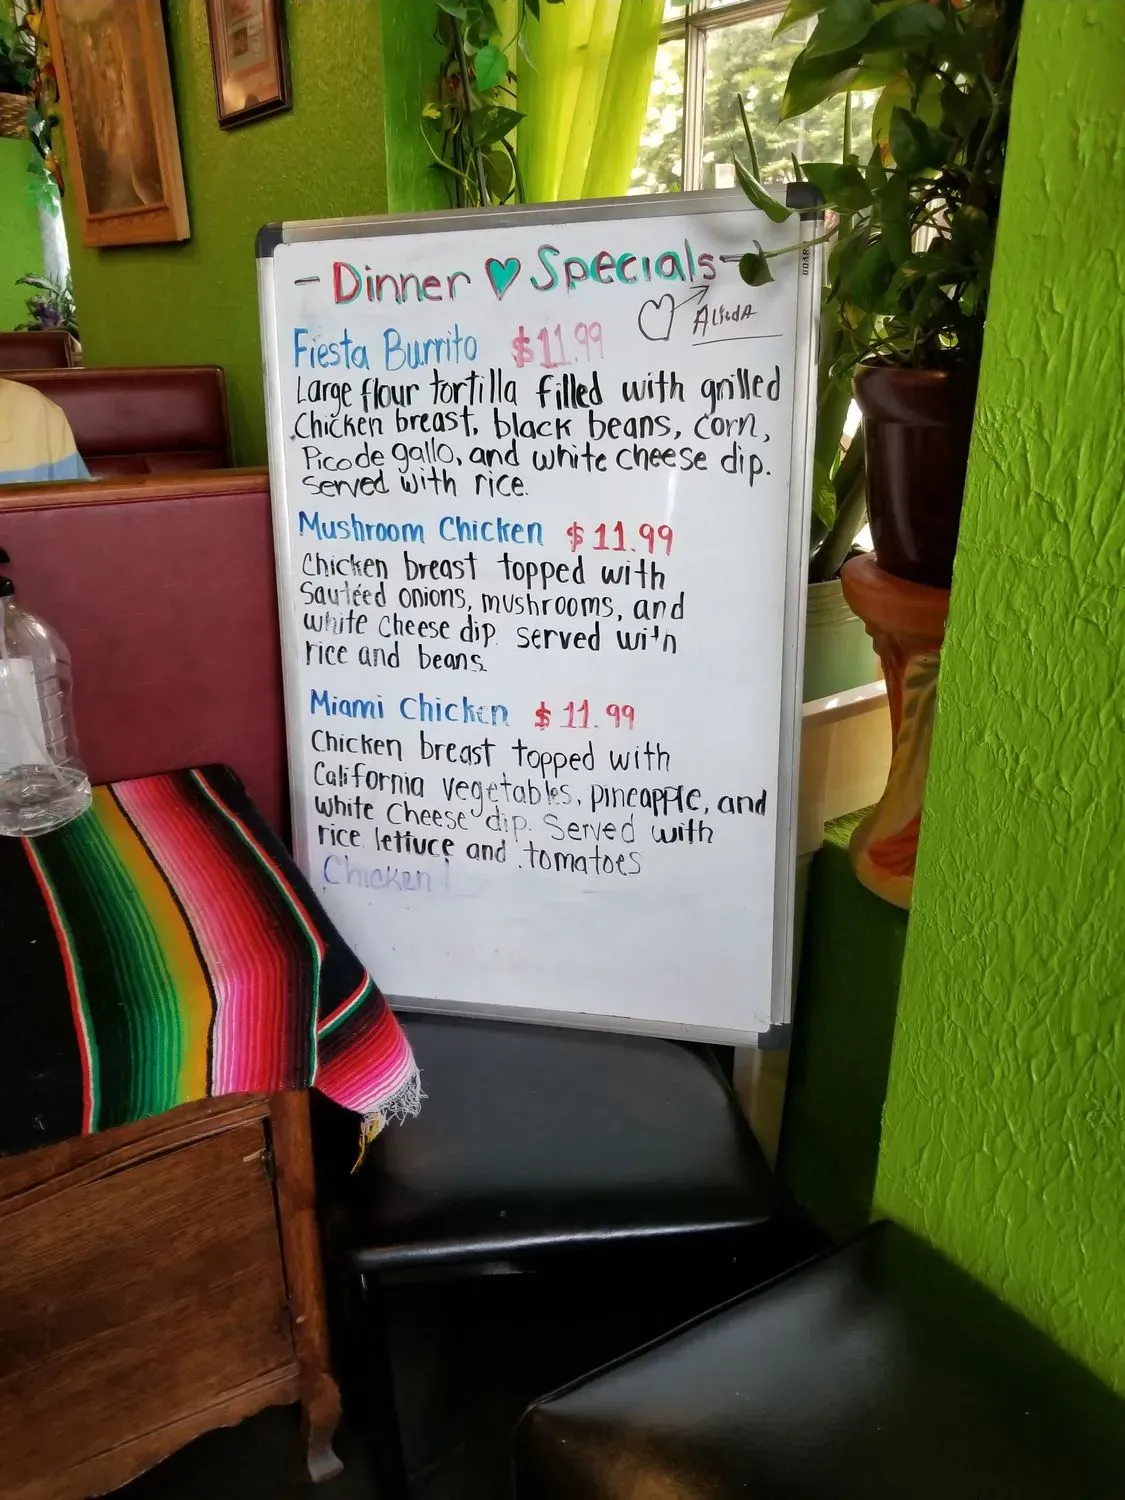 - Dinner ♥ Specials -
Fiesta Burrito $11.99
Large flour tortilla filled with grilled
Chicken breast, black beans, corn,
Pico de gallo, and white cheese dip.
Served with rice.
Mushroom Chicken $11.99
Chicken breast topped with
Sautéed onions, mushrooms, and
white cheese dip. served with
rice and beans.
Miami Chicken $11.99
Chicken breast topped with
California vegetables, pineapple, and
white Cheese dip. Served with
rice, lettuce and tomatoes
Chicken